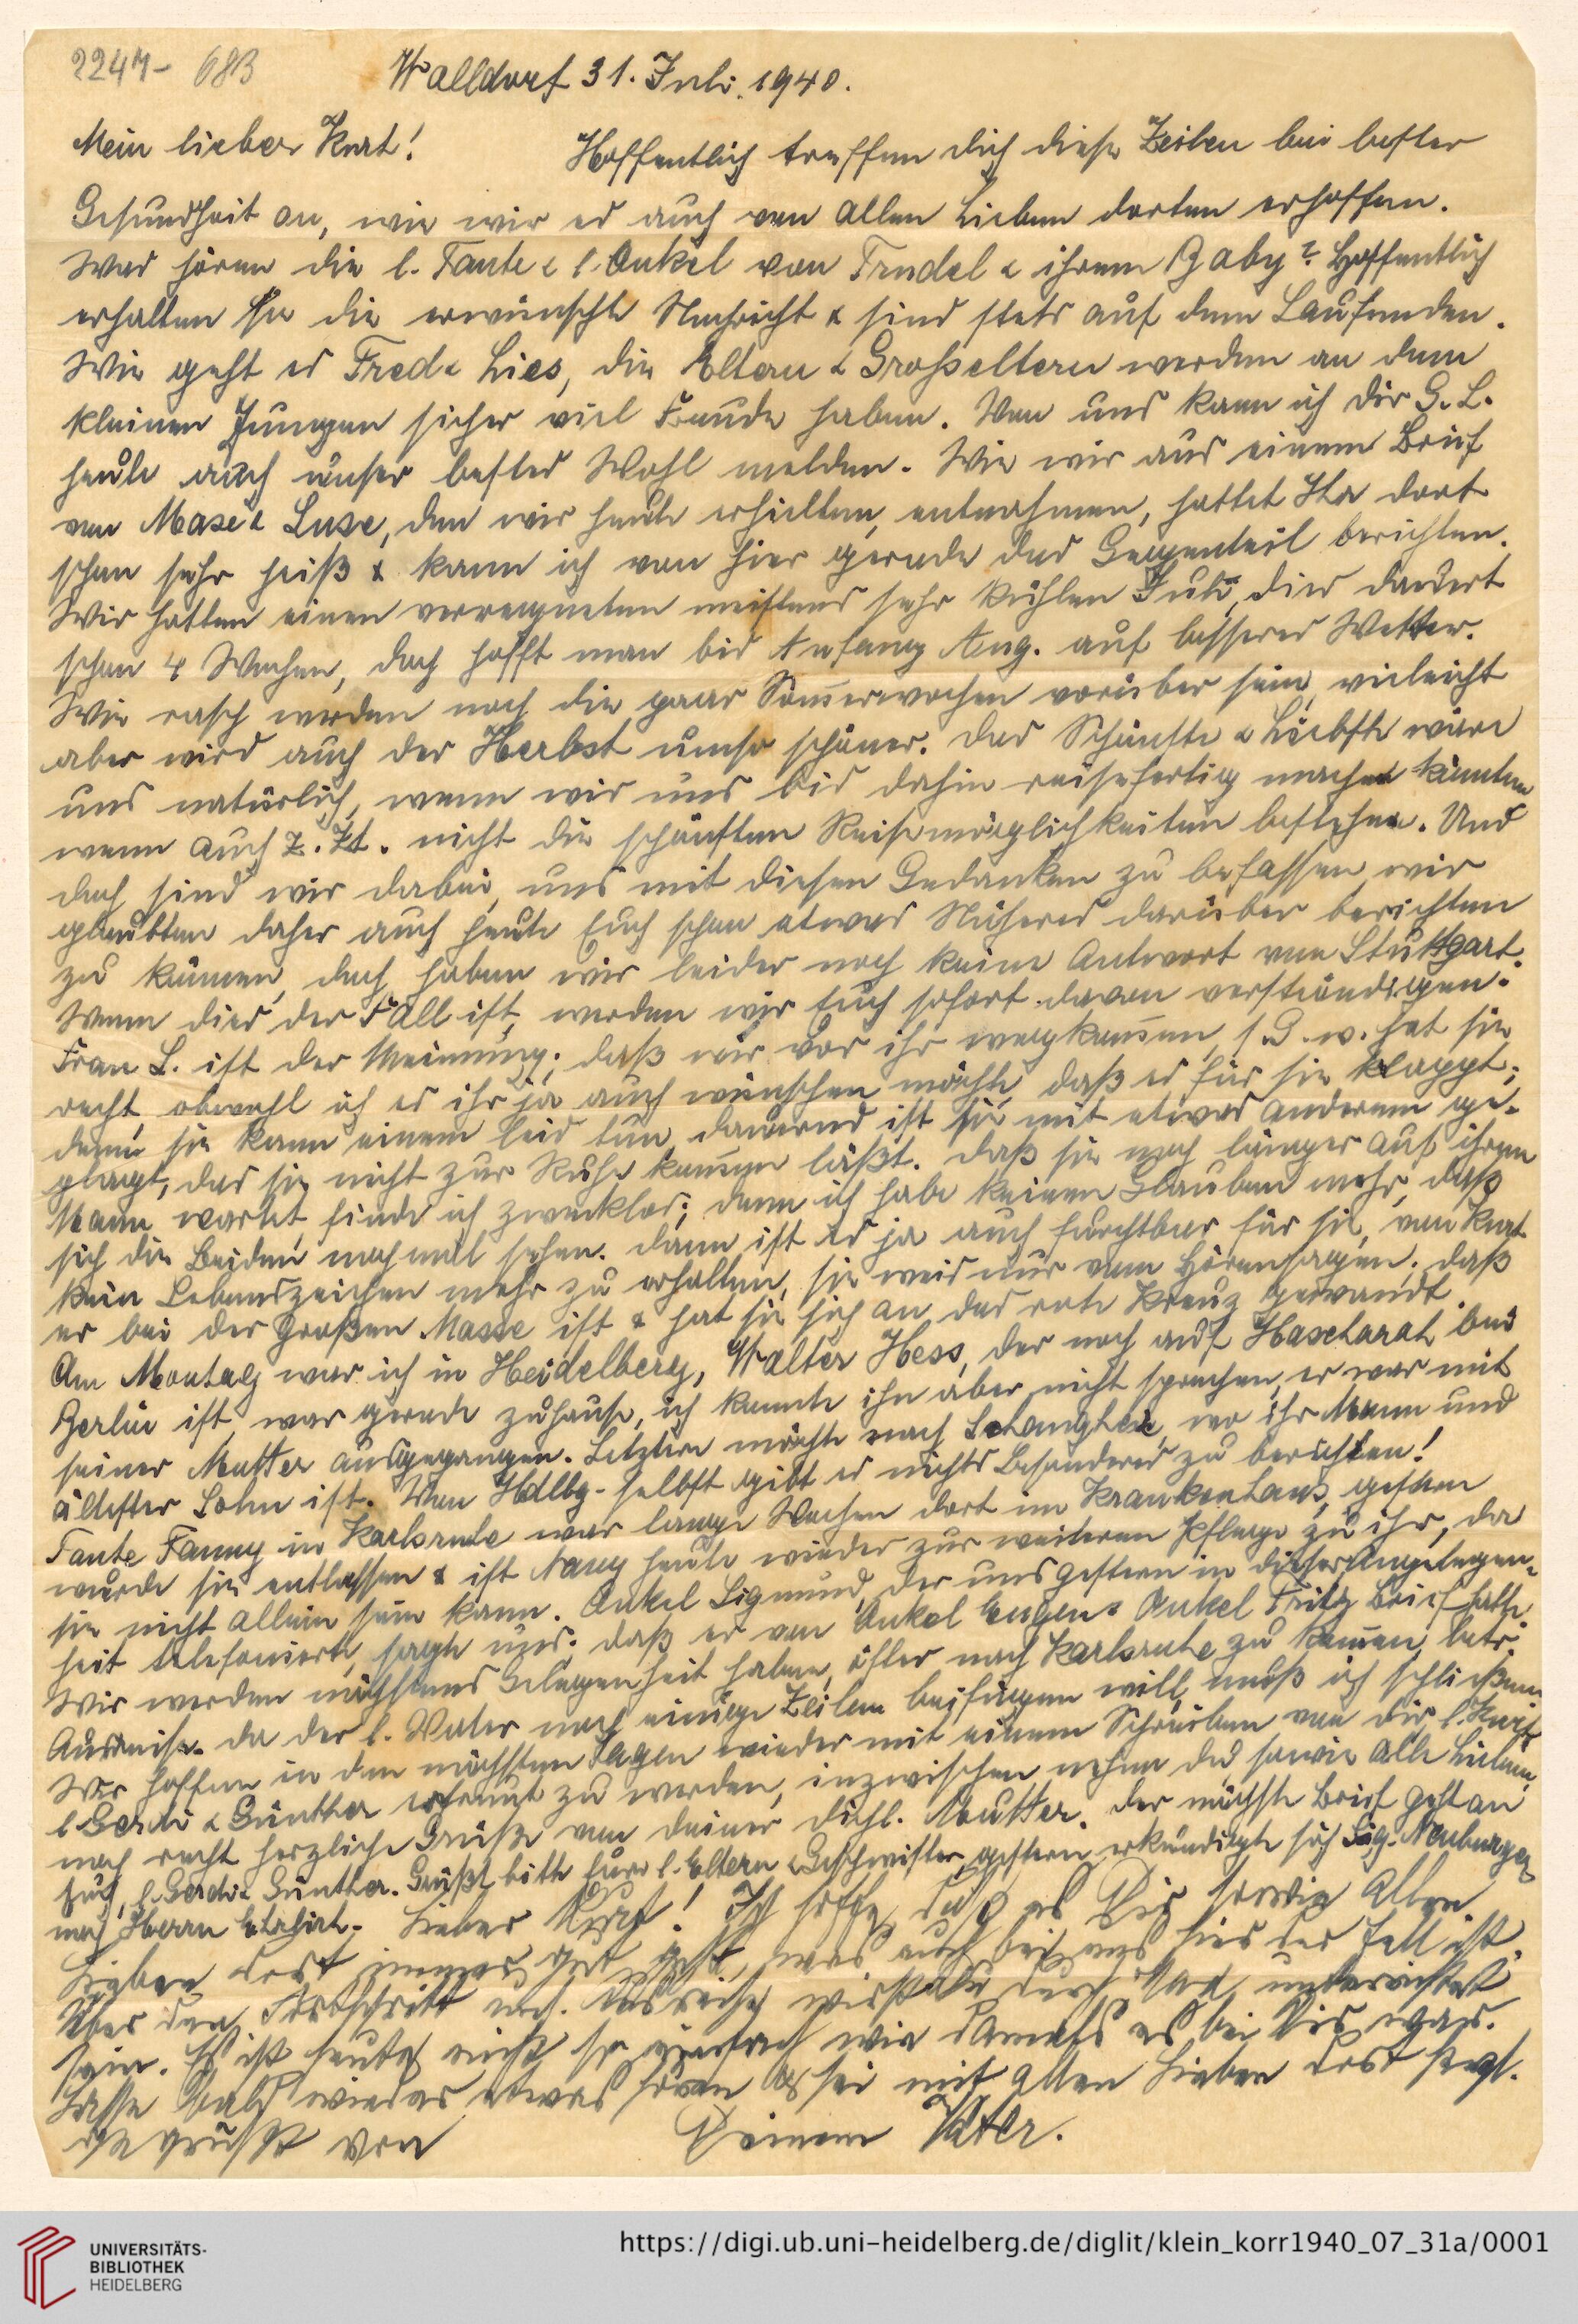 2247- 683
Walldorf 31. Juli. 1940.
Mein lieber Kurt! Hoffentlich treffen dich diese Zeilen bei bester
Gesundheit an, wie wir es auch von allen Lieben dorten erhoffen.
Was hören die l. Tante & l. Onkel von Trudel & ihrem Baby? Hoffentlich
erhalten sie die erwünschte Nachricht & sind stets auf dem Laufenden.
Wie geht es Fred & Lies, die Eltern & Großeltern werden an dem
kleinen Jungen sicher viel Freude haben. Von uns kann ich dir G. L.
heute auch unser bestes Wohl melden. Wie wir aus einem Brief
von Mase & Luse, den wir heute erhielten, entnahmen, hattet Ihr dort
schon sehr heiß & kann ich von hier gerade das Gegenteil berichten.
Wir hatten einen verregneten meistens sehr kühlen Juli, dies dauert
schon 4 Wochen, doch hofft man bis Anfang Aug. auf besseres Wetter.
Wie rasch werden noch die paar Somerwochen vorüber sein, vieleicht
aber wird auch der Herbst umso schöner. Das Schönste & Liebste wäre
uns natürlich, wenn wir uns bis dahin reisefertig machen könnten
wenn auch z. Zt. nicht die schönsten Reisemöglichkeiten bestehen. Und
doch sind wir dabei, uns mit diesen Gedanken zu befassen, wir
glaubten daher auch heute Euch schon etwas Näheres darüber berichten
zu können, doch haben wir leider noch keine Antwort von Stuttgart.
Wenn dies der Fall ist, werden wir Euch sofort davon verständigen.
Frau L. ist der Meinung, daß wir vor ihr wegkommen, s. G. w. hat sie
recht, obwohl ich es ihr ja auch wünschen möchte, daß es für sie klappt;
denn sie kann einem leid tun, dauernd ist sie mit etwas anderem ge-
plagt, das sie nicht zur Ruhe kommen läßt. Daß sie noch länger auf ihren
Mann wartet, finde ich zwecklos; denn ich habe keinen Glauben mehr, daß
sich die Beiden nochmal sehen. Dann ist es ja auch furchtbar für sie, von Kurt
kein Lebenszeichen mehr zu erhalten, sie weis nur vom Hörensagen, daß
er bei der großen Masse ist & hat sie sich an das rote Kreuz gewandt.
Am Montag war ich in Heidelberg, Walter Hess, der noch auf Hascharah bei
Berlin ist, war gerade zuhause, ich konnte ihn aber nicht sprechen, er war mit
seiner Mutter ausgegangen. Letztere möchte nach Schanghai, wo ihr Mann und
ältester Sohn ist. Von Hdlbg. selbst gibt es nichts Besonderes zu berichten!
Tante Fanny in Karlsruhe war lange Wochen dort im Krankenhaus, gestern
wurde sie entlassen & ist Nany heute wieder zur weiteren Pflege zu ihr, da
sie nicht allein sein kann. Onkel Sigmund, der uns gestern in dieser Angelegen-
heit telefonierte, sagte uns, daß er von Onkel Eugen & Onkel Fritz Brief hatte.
Wir werden nächstens Gelegenheit haben, öfter nach Karlsruhe zu kommen, betr.
Ausreise. Da der l. Vater noch einige Zeilen beifügen will, muß ich schließen.
Wir hoffen in den nächsten Tagen wieder mit einem Schreiben von dir, l. Kurt,
l. Gerdi & Günther erfreut zu werden, inzwischen nehme du sowie alle Lieben,
noch recht herzliche Grüße von deiner dichl. Mutter. Der nächste Brief geht an
Euch, l. Gerdi & Günther. Grüßt bitte Eure l. Eltern & Geschwister, gestern erkundigte sich Sig. Neuburger
nach Herrn
Lieber Kurt! Ich hoffe, daß es Dir sowie allen
Lieben dort immer gut geht, was auch bei uns hier der Fall ist.
Über den Fortschritt uns. Ausreise wirst du durch unterrichtet
sein. Es ist heute nicht so einfach wie damals es bei Dir war.
Lasse bald wieder etwas hören & sei mit allen Lieben dort
gegrüßt von Deinem Vater.
UNIVERSITÄTS-
BIBLIOTHEK
HEIDELBERG
https://digi.ub.uni-heidelberg.de/diglit/klein_korr1940_07_31a/0001